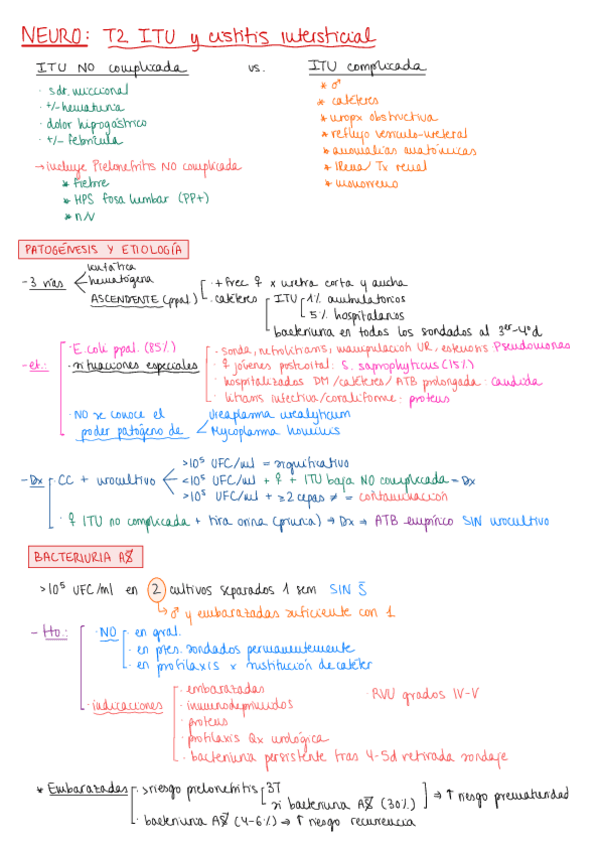 NEURO: T2 ITU y cistitis intersticial
ITU NO complicada vs. ITU complicada
· sdr. miccional
· +/- hematuria
· dolor hipogástrico
· +/- febrícula
→ incluye Pielonefritis NO complicada
* Fiebre
* HPS fosa lumbar (PP+)
* n/v
* ♂
* catéteres
* uropx obstructiva
* reflujo vesiculo-ureteral
* anomalías anatómicas
* IRenal/ Tx renal
* monorreno
PATOGÉNESIS Y ETIOLOGÍA
- 3 vías
linfática
hematógena
ASCENDENTE (ppal.)
· + frec ♀ x uretra corta y ancha
· catéteres
ITU
1% ambulatorios
5% hospitalarios
bacteriuria en todos los sondados al 3er-4º d
- et.:
· E. coli ppal. (85%)
· situaciones especiales
· sonda, nefrolitiasis, manipulación UR, estenosis: Pseudomonas
· ♀ jóvenes postcoital: S. saprophyticus (15%)
· hospitalizados DM /catéteres/ ATB prolongada: candida
· litiasis infectiva/coraliforme: proteus
· NO se conoce el poder patógeno de
Ureaplasma urealyticum
Mycoplasma hominis
- Dx
· CC + urocultivo
>10⁵ UFC/ml = significativo
<10⁵ UFC/ml + ♀ + ITU baja NO complicada = Dx
>10⁵ UFC/ml + ≥2 cepas ≠ = contaminación
· ♀ ITU no complicada + tira orina (piuria) → Dx → ATB empírico SIN urocultivo
BACTERIURIA AS
>10⁵ UFC/ml en 2 cultivos separados 1 sem SIN S
→ ♂ y embarazadas suficiente con 1
- tto.:
· NO
· en gral.
· en ptes. sondados permanentemente
· en profilaxis x sustitución de catéter
· indicaciones
· embarazadas
· inmunodeprimidos
· proteus
· profilaxis Qx urológica
· bacteriuria persistente tras 4-5d retirada sondaje
· RVU grados IV-V
* Embarazadas
· >riesgo pielonefritis
3T
si bacteriuria AS (30%)
→ ↑ riesgo prematuridad
· bacteriuria AS (4-6%) → ↑ riesgo recurrencia